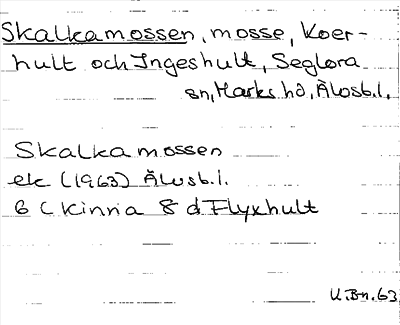 Skalkamossen, mosse, Koer-
hult och Ingeshult, Seglora
sn, Marks hd, Älvsb.l.
Skalkamossen
ek (1963) Älvsb.l.
6 C Kinna 8 d Flyxhult
U.Bn.63